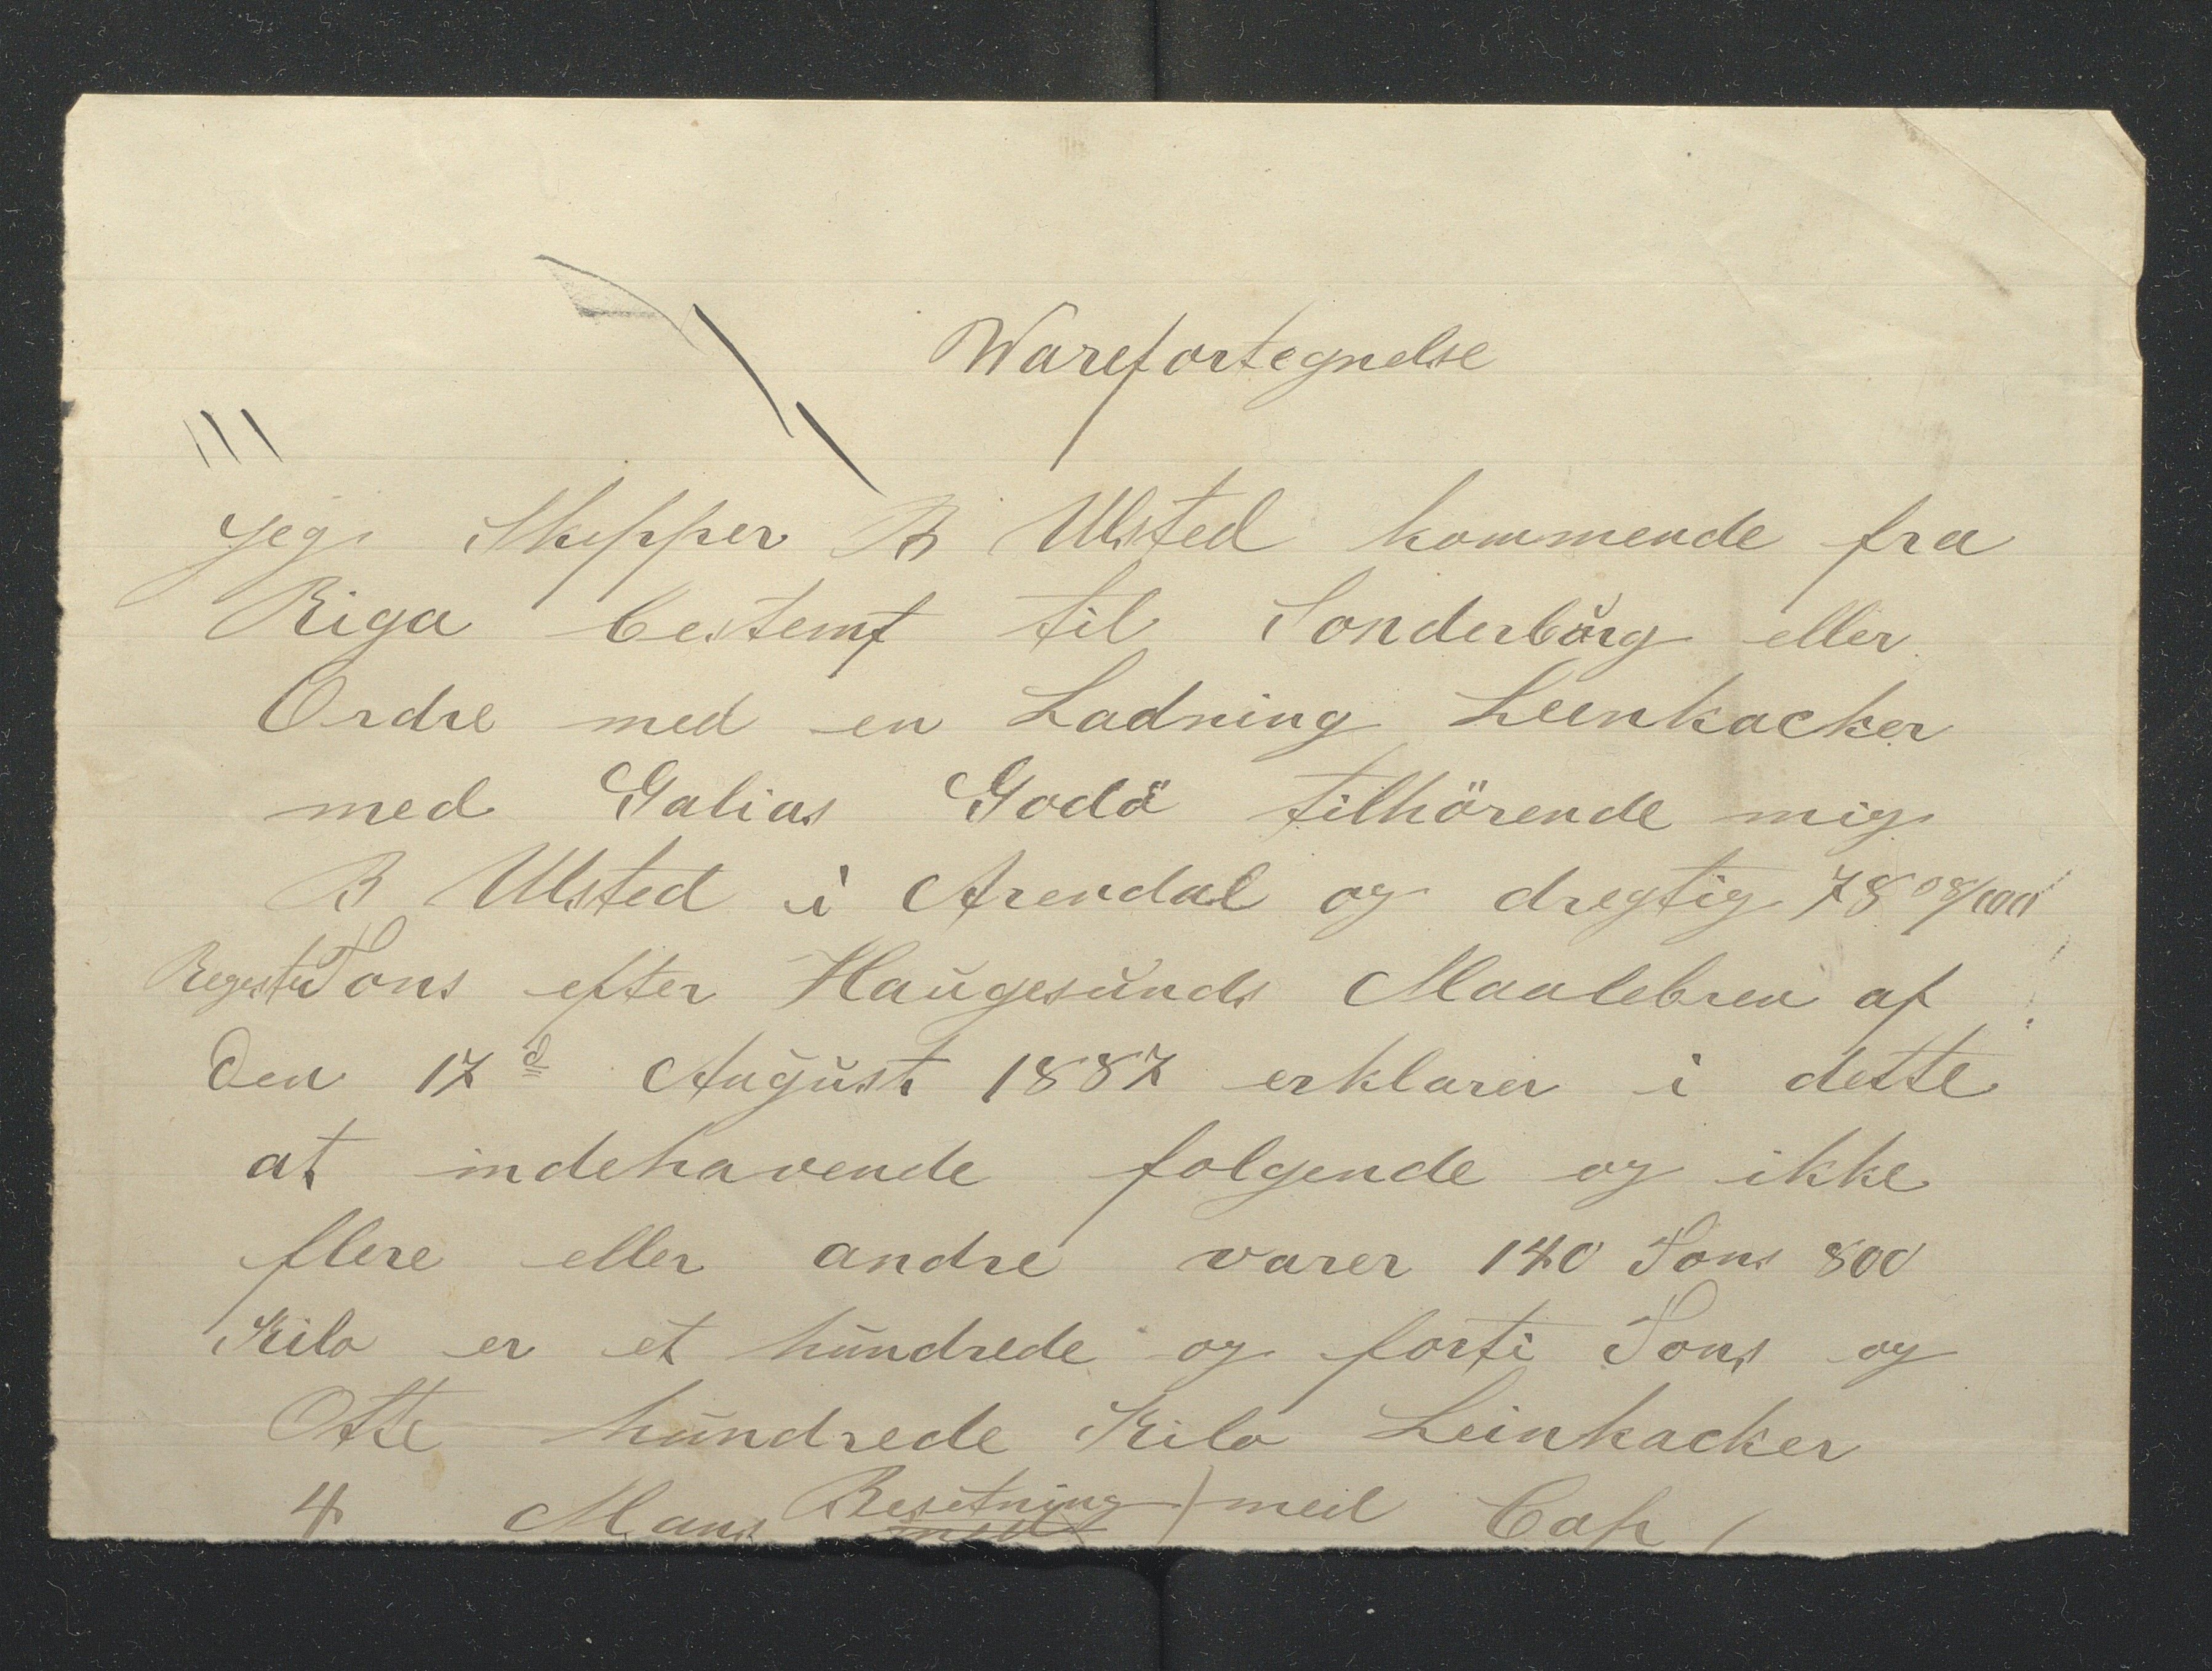 Warefortegnelse
Jeg Skipper B Ulsted kommende fra
Riga bestemt til Sonderbŭrg eller
Ordre med en Ladning Leenkacker
med Galias Godö tilhörende mig
B Ulsted i Arendal og dregtig 78 08/100
Register Tons efter Haŭgesŭnds Maalebrev af
den 17d Aŭgŭst 1887 erklarer i dette
at indehavende folgende og ikke
flere eller andre varer 140 Tons 800
Kilo er et hŭndrede og forti Tons og
Otte hŭndrede Kilo Leinkacker
4 Mans Besetning med Cap